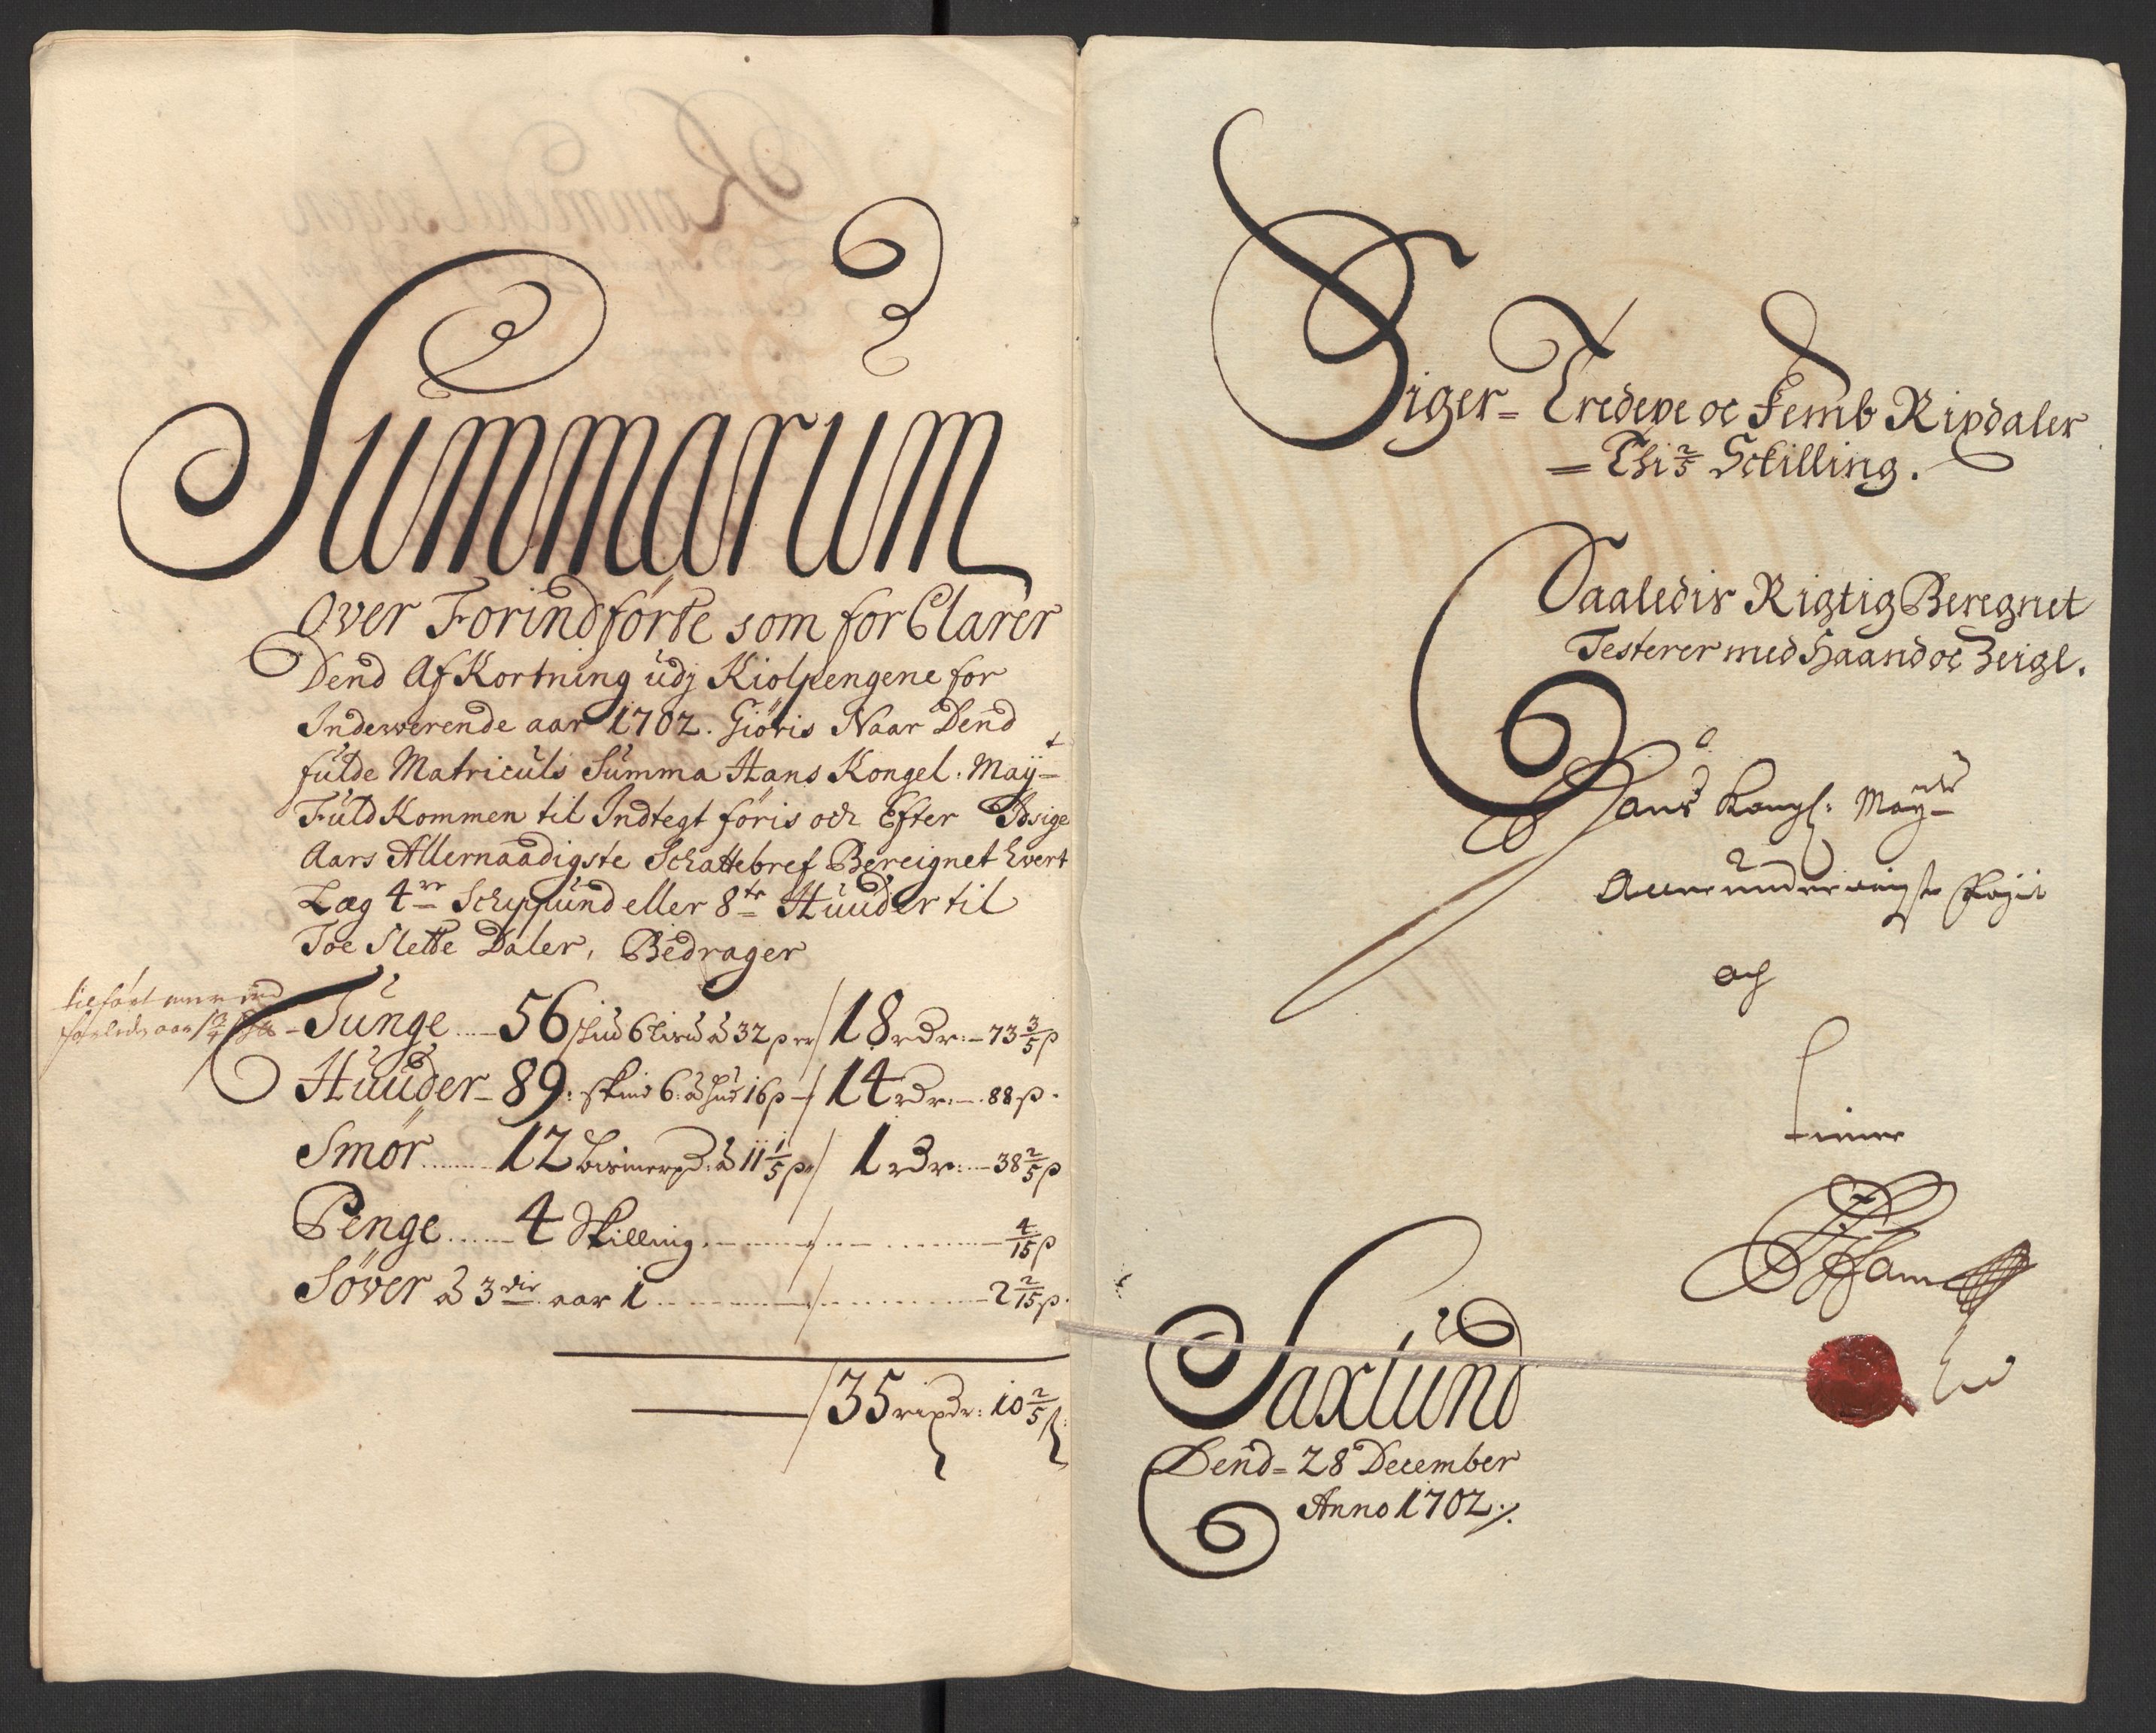 Summarum
Over Forindförte som forClarer
Dend AfKortning udj Kiolpengene for
Indewerende aar 1702. Giöris Naar Dend
fulde Matriculs Summa Hans Kongel. Mayt
FuldKommen til Indtegt föris och Efter Dsige
Aars Allernaadigste Schattebref Bereignet hvert
Læg 4re Schippund eller 8te Huuder til
Toe Slette Daler, Bedrager
Tunge .... 56 6 à 32 18 rdr: - 73 3/5 β
Huuder - 89: skind 6: à hud 16 β - / 14 rdr: - 88 β.
Smör ...... 12 bismerpd: à 11 1/5 β / 1 rdr: - 38 2/5 β
Penge ..... 4 Skilling. - / - 4/15 β
Söver à 3 aar 1 ........ / ........ 2 2/15 β.
/ 35 rixdr: 10 2/5 β:
Siger = Tredeve oc Femb Rixdaler
= Thi 2/5 Schilling.
Saaledis Rigtig Beregnet
Testerer med Haand oc Zeigl.
Hans Kongl: May
og
tiener
Saxlund
Dend = 28 December
Anno 1702 ./.